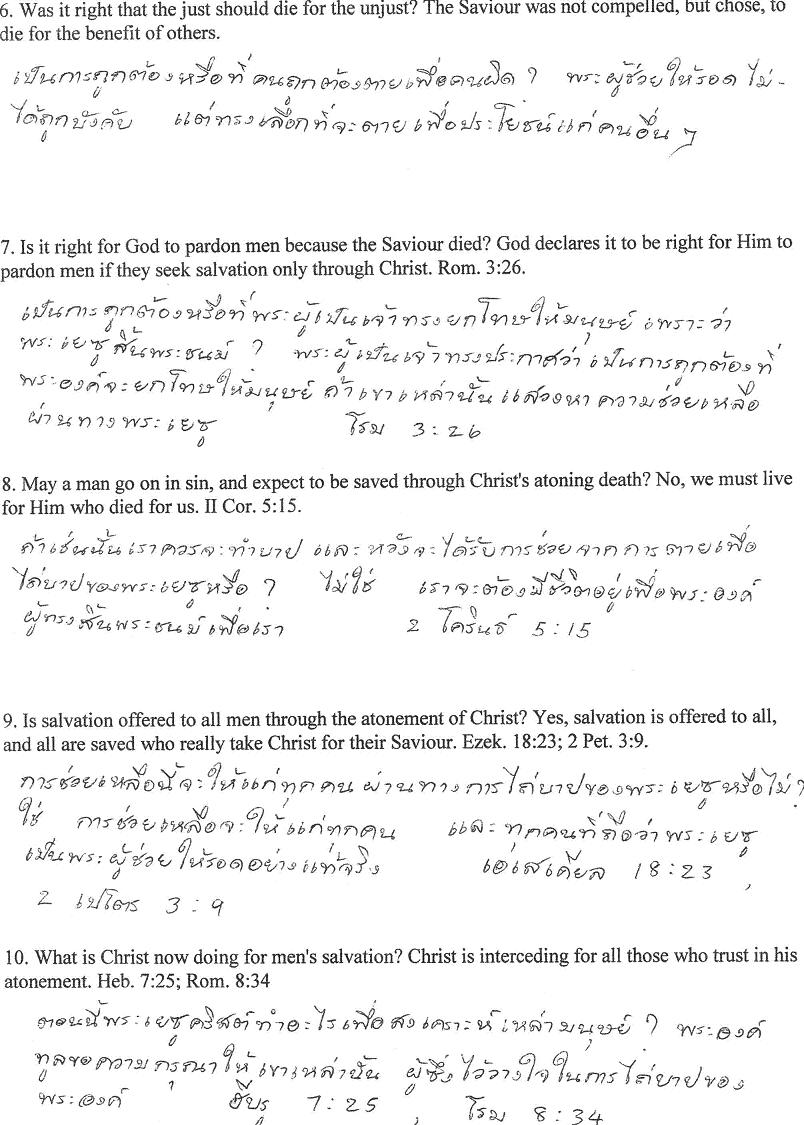 6. Was it right that the just should die for the unjust? The Saviour was not compelled, but chose, to
die for the benefit of others.
เป็นการถูกต้องหรือที่ คนถูกต้องตายเพื่อคนผิด ? พระผู้ช่วยให้รอด ไม่-
ได้ถูกบังคับ แต่ทรงเลือกที่จะตายเพื่อประโยชน์แก่คนอื่น ๆ
7. Is it right for God to pardon men because the Saviour died? God declares it to be right for Him to
pardon men if they seek salvation only through Christ. Rom. 3:26.
เป็นการถูกต้องหรือที่พระผู้เป็นเจ้าทรงยกโทษให้มนุษย์ เพราะว่า
พระเยซูสิ้นพระชนม์ ? พระผู้เป็นเจ้าทรงประกาศว่า เป็นการถูกต้องที่
พระองค์จะยกโทษให้มนุษย์ ถ้าเขาเหล่านั้น แสวงหาความช่วยเหลือ
ผ่านทางพระเยซู โรม 3:26
8. May a man go on in sin, and expect to be saved through Christ's atoning death? No, we must live
for Him who died for us. II Cor. 5:15.
ถ้าเช่นนั้นเราควรจะทำบาป และ หวังจะได้รับการช่วยจากการตายเพื่อ
ไถ่บาปของพระเยซูหรือ ? ไม่ใช่ เราจะต้องมีชีวิตอยู่เพื่อพระองค์
ผู้ทรงสิ้นพระชนม์เพื่อเรา 2 โครินธ์ 5:15
9. Is salvation offered to all men through the atonement of Christ? Yes, salvation is offered to all,
and all are saved who really take Christ for their Saviour. Ezek. 18:23; 2 Pet. 3:9.
การช่วยเหลือนี้จะให้แก่ทุกคน ผ่านทางการไถ่บาปของพระเยซูหรือไม่?
ใช่ การช่วยเหลือจะให้แก่ทุกคน และ ทุกคนที่ถือว่าพระเยซู
เป็นพระผู้ช่วยให้รอดอย่างแท้จริง เอเสเคียล 18:23,
2 เปโตร 3:9
10. What is Christ now doing for men's salvation? Christ is interceding for all those who trust in his
atonement. Heb. 7:25; Rom. 8:34
ตอนนี้พระเยซูคริสต์ทำอะไรเพื่อสงเคราะห์เหล่ามนุษย์ ? พระองค์
ทูลขอความกรุณาให้เขาเหล่านั้น ผู้ซึ่งไว้วางใจในการไถ่บาปของ
พระองค์ ฮีบรู 7:25, โรม 8:34